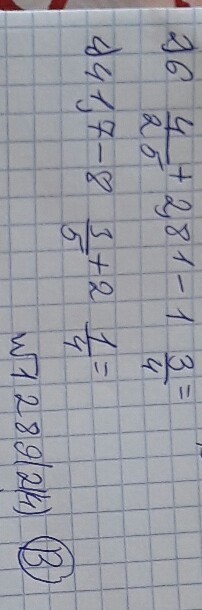 2) 6 4/25 + 2,81 - 1 3/4 =
4) 41,7 - 8 3/5 + 2 1/4 =
№1289(2;4) В